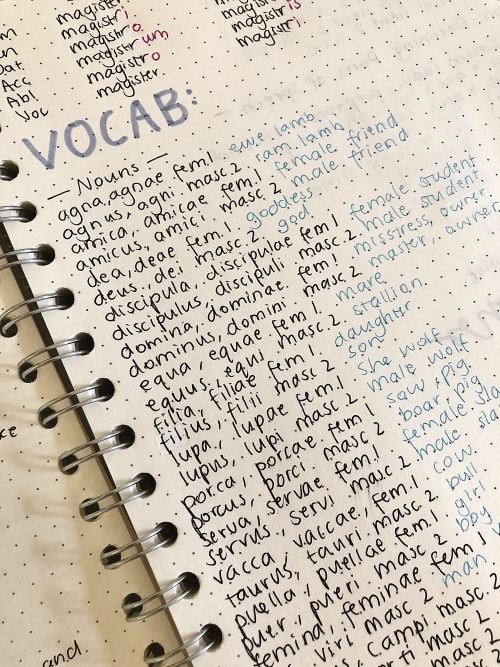 magister
magistri
magistro
magistrum
magistro
magister
Acc
Abl
Voc
VOCAB:
— Nouns —
agna, agnae fem.1 ewe lamb
agnus, agni masc 2 ram lamb
amica, amicae fem.1 female friend
amicus, amici masc 2 male friend
dea, deae fem.1 goddess
deus, dei masc.2 god
discipula, discipulae fem 1 female student
discipulus, discipuli masc.2 male student
domina, dominae fem 1 misstress, owner
dominus, domini masc 2 master, owner
equa, equae fem 1 mare
equus, equi masc.2 stallion
filia, filiae fem 1. daughter
filius, filii masc 2 son
lupa, lupae fem.1 she wolf
lupus, lupi masc 2 male wolf
porca, porcae fem 1 sow, pig
porcus, porci masc 2 boar, pig
serva, servae fem.1 female
servus, servi masc 2 male
vacca, vaccae, fem.1 cow
taurus, tauri, masc 2. bull
puella, puellae fem.1 girl
puer, pueri masc 2 boy
femina, feminae fem 1
viri masc 2 man
campi masc.2
masc 2
and